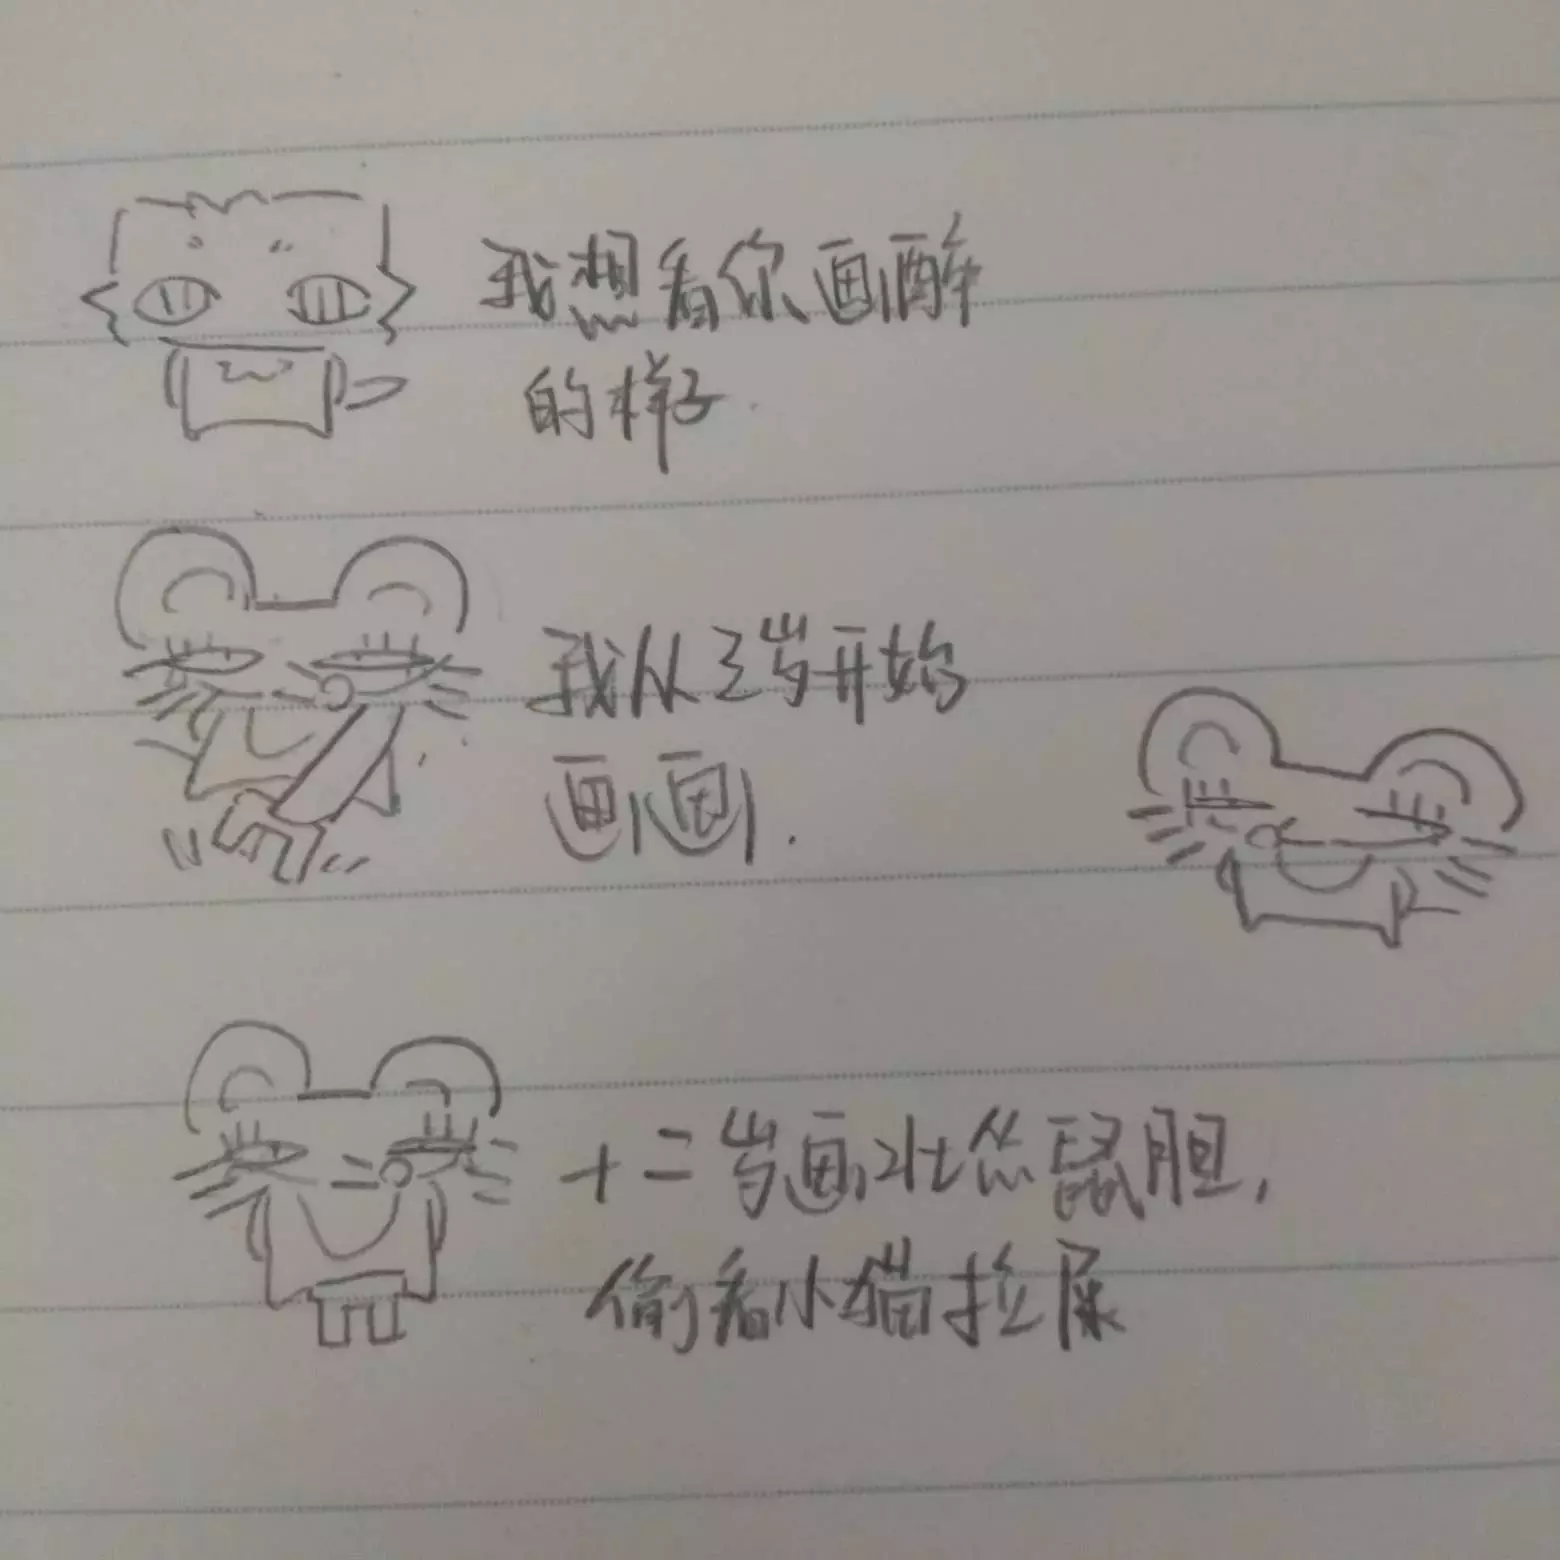 我想看你画醉
的样子.
我从3岁开始
画画.
十二岁画壮怂鼠胆,
偷看小猫拉屎